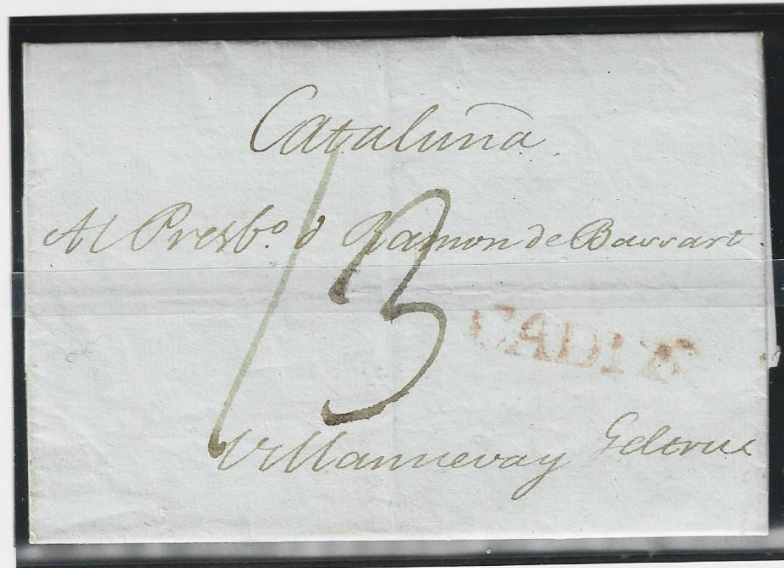 Cataluña
Al Presb.º d Ramon de Bassart.
13
CADIZ
Villanueva y Geltru